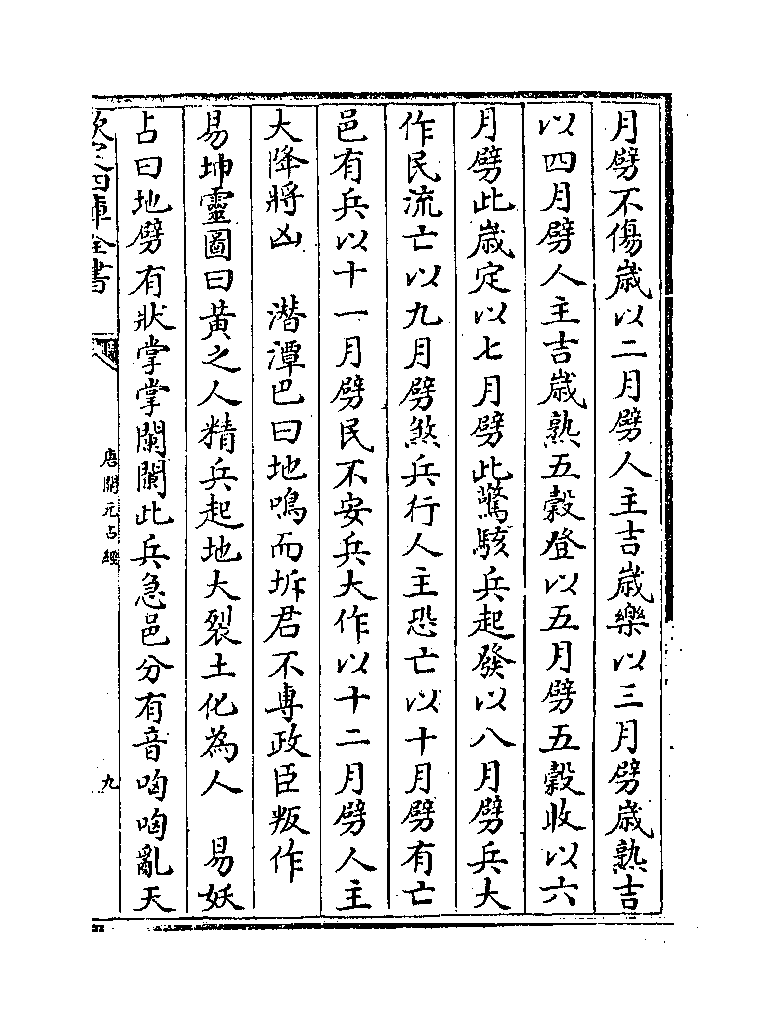 月劈不傷歲以二月劈人主吉歲樂以三月劈歲熟吉
以四月劈人主吉歲熟五穀登以五月劈五穀收以六
月劈此歲定以七月劈此驚駭兵起發以八月劈兵大
作民流亡以九月劈煞兵行人主恐亡以十月劈有亡
邑有兵以十一月劈民不安兵大作以十二月劈人主
大降將凶　潛潭巴曰地鳴而坼君不專政臣叛作
易坤靈圖曰黃之人精兵起地大裂土化為人　易妖
占曰地劈有狀掌掌闌闌此兵急邑分有音啕啕亂天
欽定四庫全書
唐開元占經
九